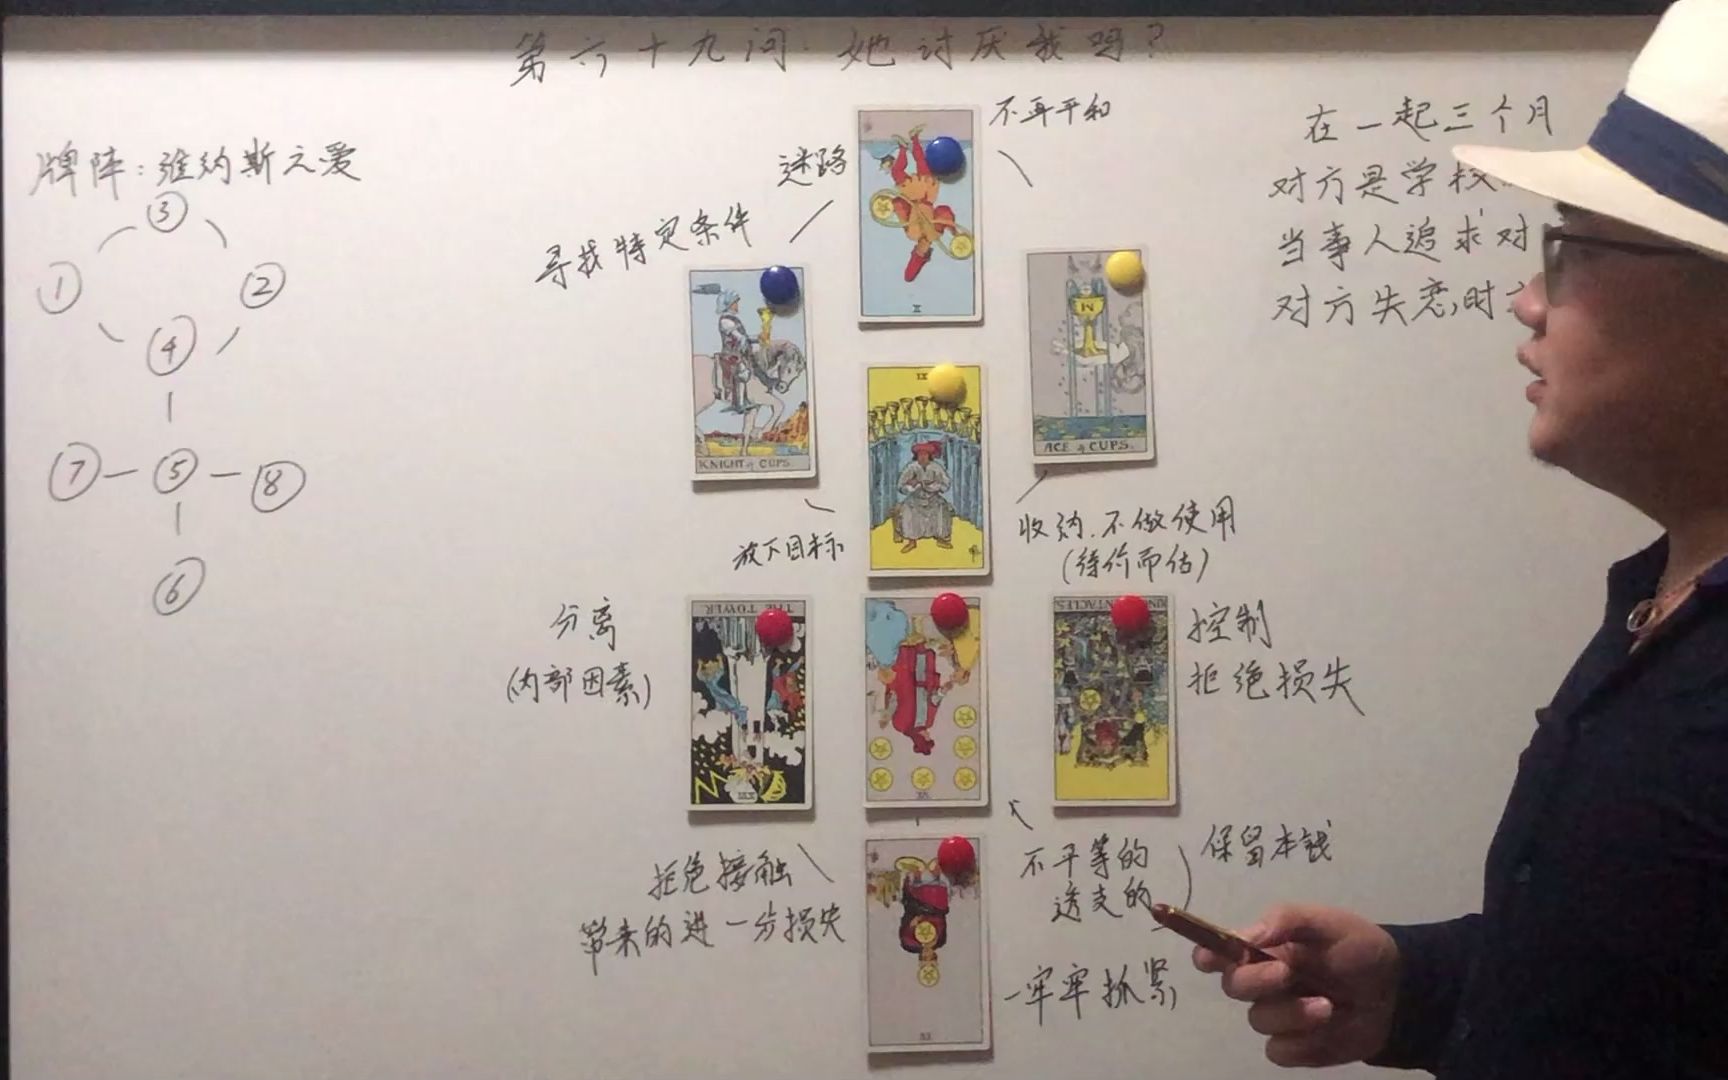 第六十九问：她讨厌我吗？
牌阵：维纳斯之爱
③
① ②
④
⑦ ⑤ ⑧
⑥
不再平和
迷路
寻找特定条件
放下目标
收纳.不做使用
(待价而估)
分离
(内部因素)
控制
拒绝损失
拒绝接触
带来的进一步损失
不平等的
透支的
保留本钱
牢牢抓紧
在一起三个月
对方是学校
当事人追求对
对方失恋,时
KNIGHT of CUPS.
ACE of CUPS.
IX
THE TOWER
XVI
VI
II